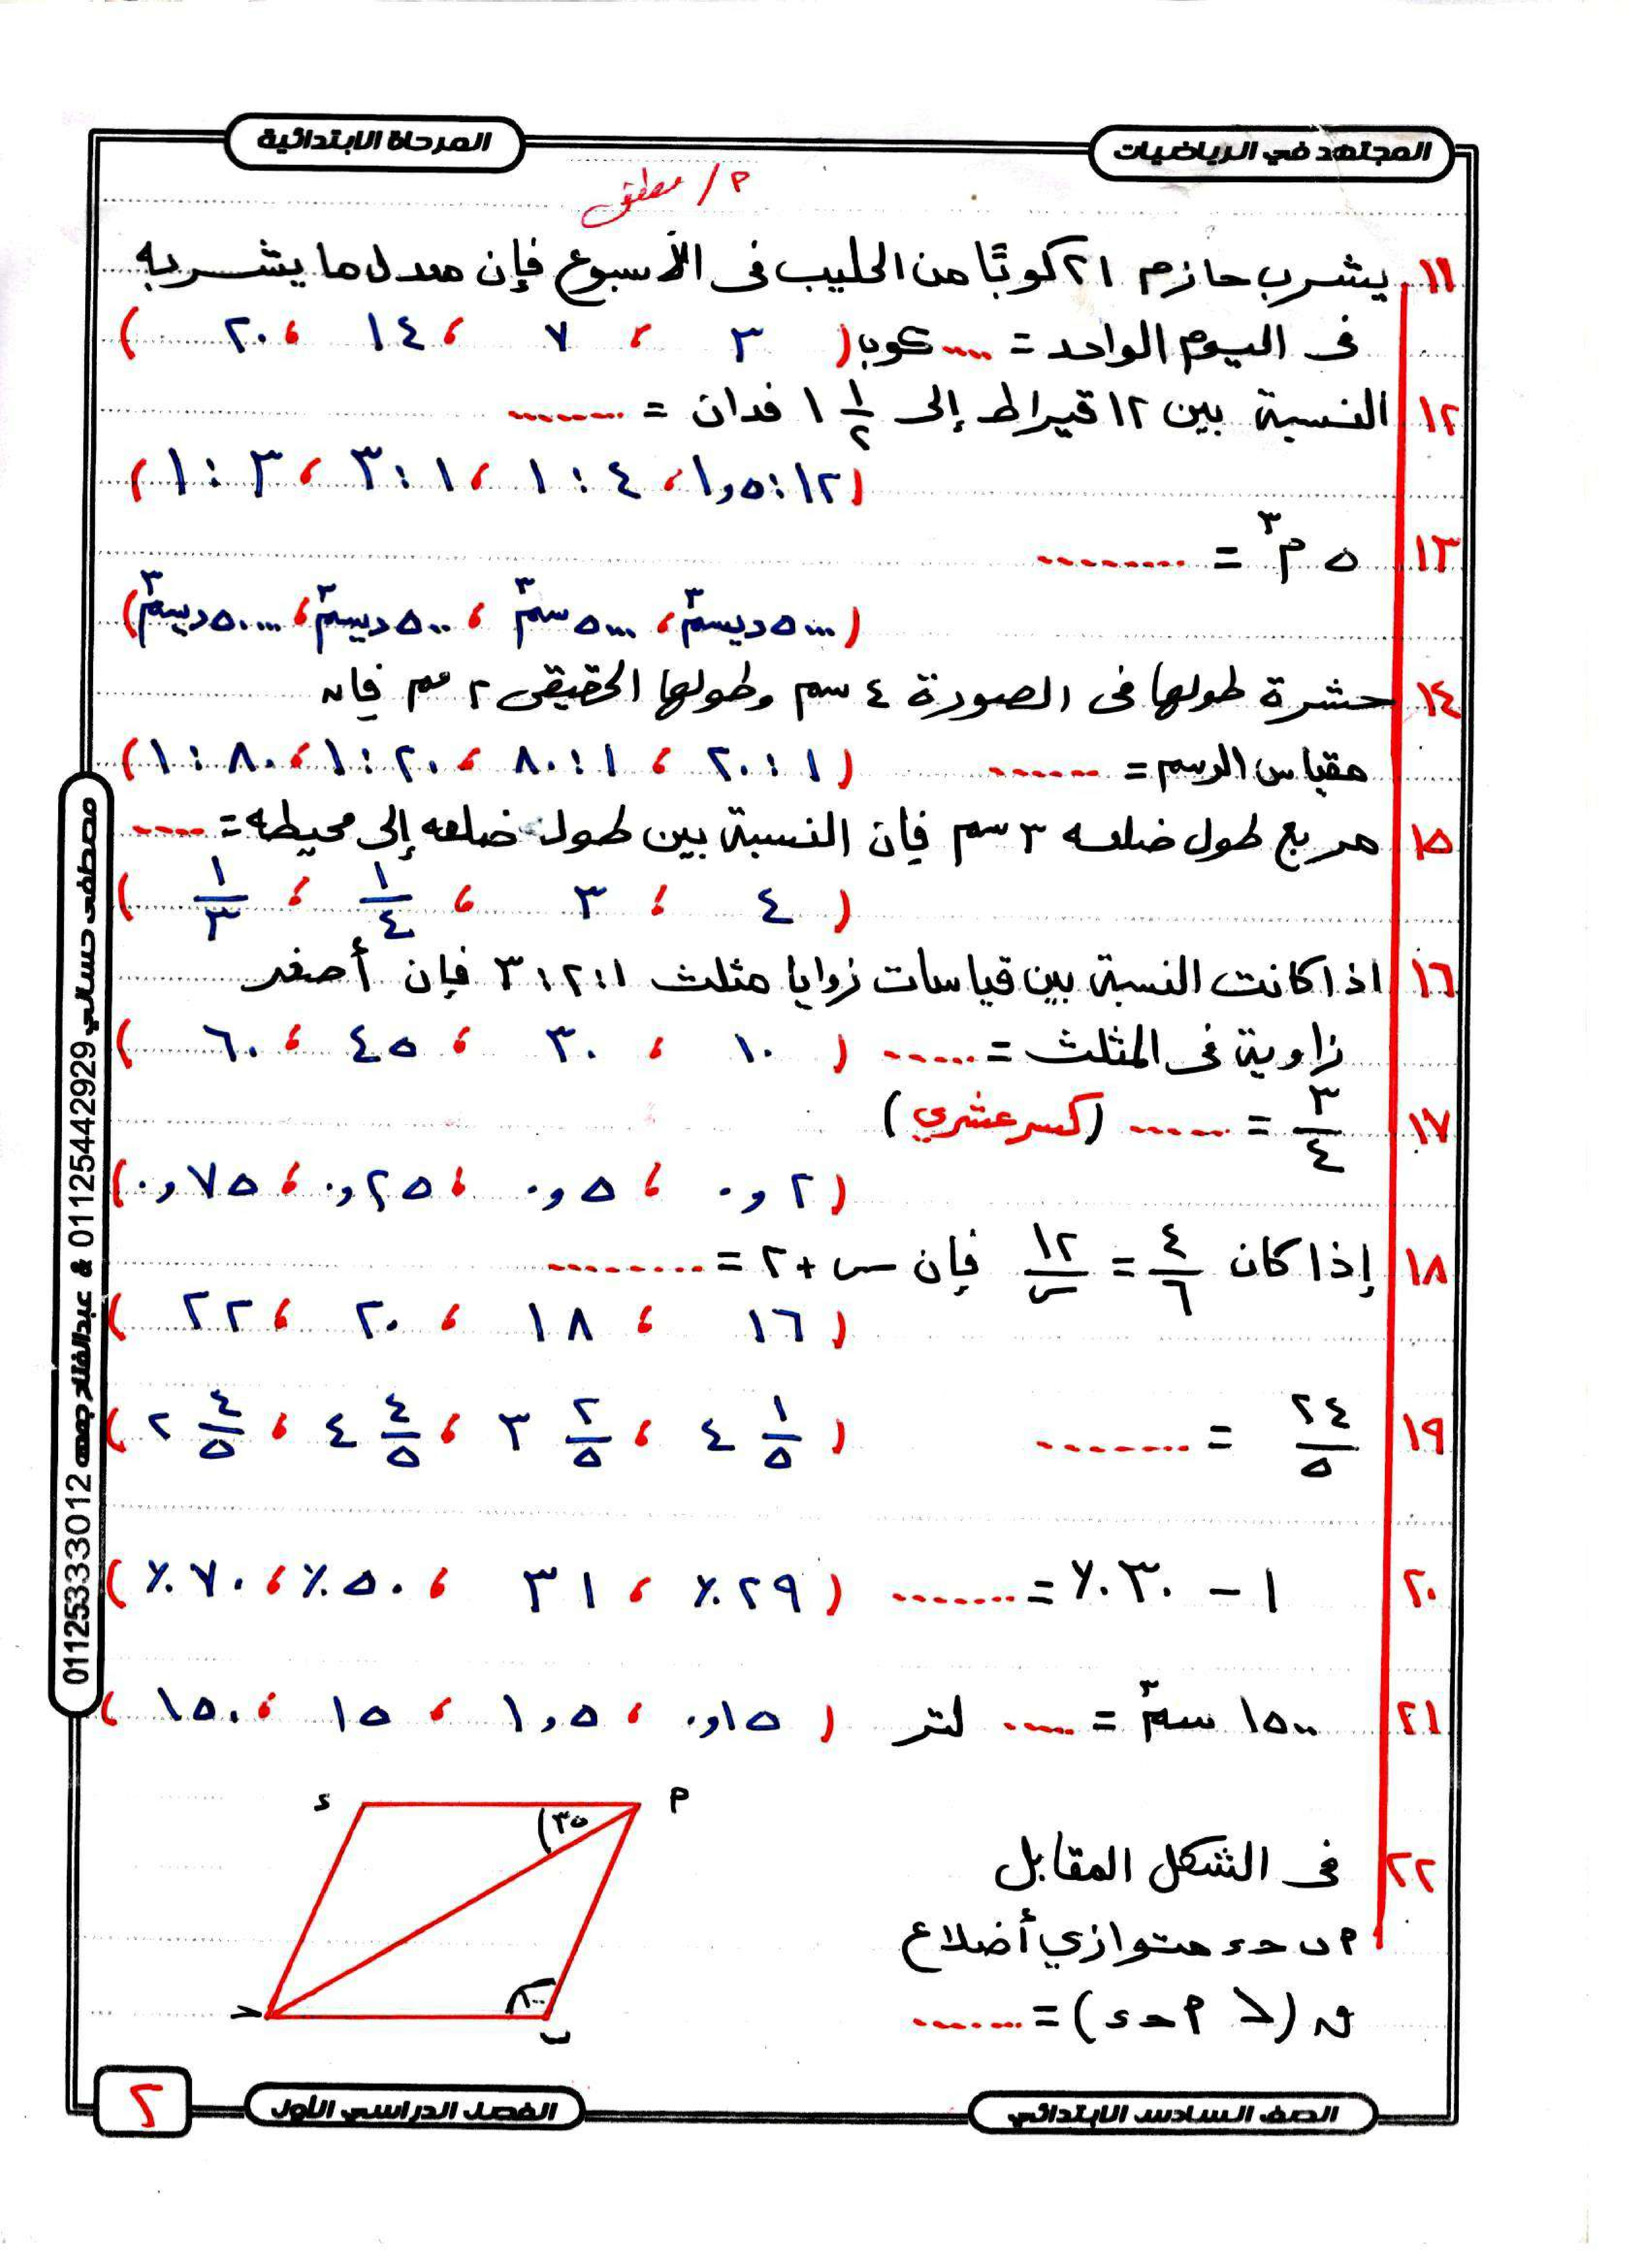 المجتهد في الرياضيات
المرحلة الابتدائية
م / مطفى
١١ يشرب حازم ٢١ كوبًا من الحليب فى الأسبوع فإن معدل ما يشربه
فى اليوم الواحد = .... كوبا ( ٣ ، ٧ ، ١٤ ، ٢٠ )
١٢ النسبة بين ١٢ قيراط إلى ١ ١/٢ فدان = ........
( ١٢ : ١,٥ ، ٤ : ١ ، ١ : ٣ ، ٣ : ١ )
١٣ ٥ م٣ = .........
( ٥٠٠٠ ديسم٣ ، ٥٠٠٠ سم٣ ، ٥٠٠ ديسم٣ ، ٥٠٠٠٠ ديسم٣ )
١٤ حشرة طولها فى الصورة ٤ سم وطولها الحقيقى ٢ مم فإن
مقياس الرسم = ...... ( ١ : ٢٠ ، ١ : ٨٠ ، ٢٠ : ١ ، ٨٠ : ١ )
١٥ مربع طول ضلعه ٣ سم فإن النسبة بين طول ضلعه إلى محيطه = ....
( ٤ ، ٣ ، ١/٤ ، ١/٣ )
١٦ اذا كانت النسبة بين قياسات زوايا مثلث ١ : ٢ : ٣ فإن أصغر
زاوية فى المثلث = ...... ( ١٠ ، ٣٠ ، ٤٥ ، ٦٠ )
١٧ ٣/٤ = ...... (كسر عشري)
( ٠,٢ ، ٠,٥ ، ٠,٢٥ ، ٠,٧٥ )
١٨ إذا كان ٤/٦ = ١٢/س فإن س + ٢ = .........
( ١٦ ، ١٨ ، ٢٠ ، ٢٢ )
١٩ ٢٤/٥ = ........ ( ٤ ١/٥ ، ٣ ٢/٥ ، ٤ ٤/٥ ، ٢ ٤/٥ )
٢٠ ١ - ٣٠٪ = ........ ( ٢٩٪ ، ٣١ ، ٥٠٪ ، ٧٠٪ )
٢١ ١٥٠٠ سم٣ = ..... لتر ( ٠,١٥ ، ١,٥ ، ١٥ ، ١٥٠ )
٢٢ فى الشكل المقابل
أ ب حـ ء متوازي أضلاع
ق (> أ حـ ء) = .......
أ
ء
٣٥
١٠٠
حـ
ب
مصطفى حساني 01125442929 & عبدالفتاح جمعه 01125333012
الصف السادس الابتدائي
الفصل الدراسي الأول
٢